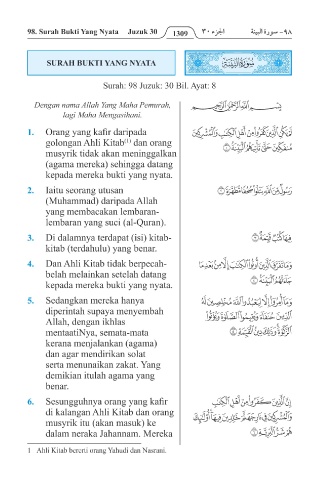 98. Surah Bukti Yang Nyata Juzuk 30 1309 الجزء ٣٠ سورة البينة - ٩٨
SURAH BUKTI YANG NYATA سُورَةُ الْبَيِّنَةِ
Surah: 98 Juzuk: 30 Bil. Ayat: 8
Dengan nama Allah Yang Maha Pemurah,
lagi Maha Mengasihani.
بِسْمِ اللَّهِ الرَّحْمَٰنِ الرَّحِيمِ
1. Orang yang kafir daripada
golongan Ahli Kitab(1) dan orang
musyrik tidak akan meninggalkan
(agama mereka) sehingga datang
kepada mereka bukti yang nyata.
لَمْ يَكُنِ الَّذِينَ كَفَرُوا مِنْ أَهْلِ الْكِتَابِ وَالْمُشْرِكِينَ
مُنفَكِّينَ حَتَّىٰ تَأْتِيَهُمُ الْبَيِّنَةُ ١
2. Iaitu seorang utusan
(Muhammad) daripada Allah
yang membacakan lembaran-
lembaran yang suci (al-Quran).
رَسُولٌ مِّنَ اللَّهِ يَتْلُو صُحُفًا مُّطَهَّرَةً ٢
3. Di dalamnya terdapat (isi) kitab-
kitab (terdahulu) yang benar.
فِيهَا كُتُبٌ قَيِّمَةٌ ٣
4. Dan Ahli Kitab tidak berpecah-
belah melainkan setelah datang
kepada mereka bukti yang nyata.
وَمَا تَفَرَّقَ الَّذِينَ أُوتُوا الْكِتَابَ إِلَّا مِن بَعْدِ مَا
جَاءَتْهُمُ الْبَيِّنَةُ ٤
5. Sedangkan mereka hanya
diperintah supaya menyembah
Allah, dengan ikhlas
mentaatiNya, semata-mata
kerana menjalankan (agama)
dan agar mendirikan solat
serta menunaikan zakat. Yang
demikian itulah agama yang
benar.
وَمَا أُمِرُوا إِلَّا لِيَعْبُدُوا اللَّهَ مُخْلِصِينَ لَهُ
الدِّينَ حُنَفَاءَ وَيُقِيمُوا الصَّلَاةَ وَيُؤْتُوا
الزَّكَاةَ وَذَٰلِكَ دِينُ الْقَيِّمَةِ ٥
6. Sesungguhnya orang yang kafir
di kalangan Ahli Kitab dan orang
musyrik itu (akan masuk) ke
dalam neraka Jahannam. Mereka
إِنَّ الَّذِينَ كَفَرُوا مِنْ أَهْلِ الْكِتَابِ
وَالْمُشْرِكِينَ فِي نَارِ جَهَنَّمَ خَالِدِينَ فِيهَا أُولَٰئِكَ
هُمْ شَرُّ الْبَرِيَّةِ ٦
1 Ahli Kitab bererti orang Yahudi dan Nasrani.